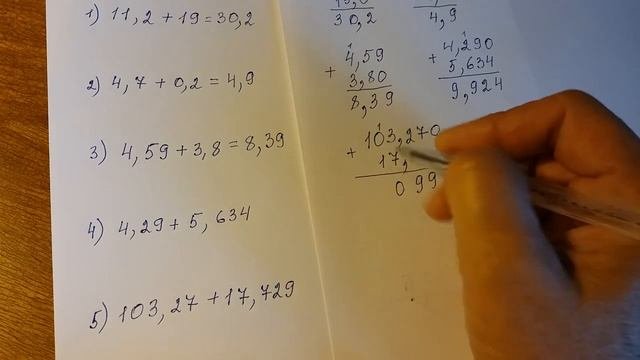 1) 11,2 + 19 = 30,2
2) 4,7 + 0,2 = 4,9
3) 4,59 + 3,8 = 8,39
4) 4,29 + 5,634
5) 103,27 + 17,729
30,2
4,9
1
4,59
+
3,80
8,39
1
4,290
+
5,634
9,924
1
103,270
+
17,
099